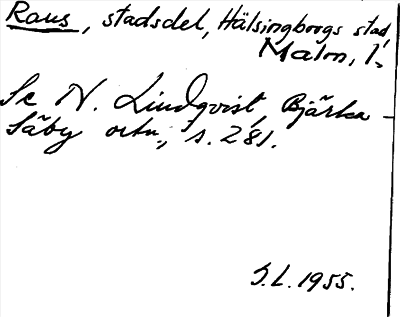 Raus, stadsdel, Hälsingborgs stad,
Malm. l.
Se N. Lindqvist, Bjärka-
Säby ortn., s. 281.
S.L. 1955.